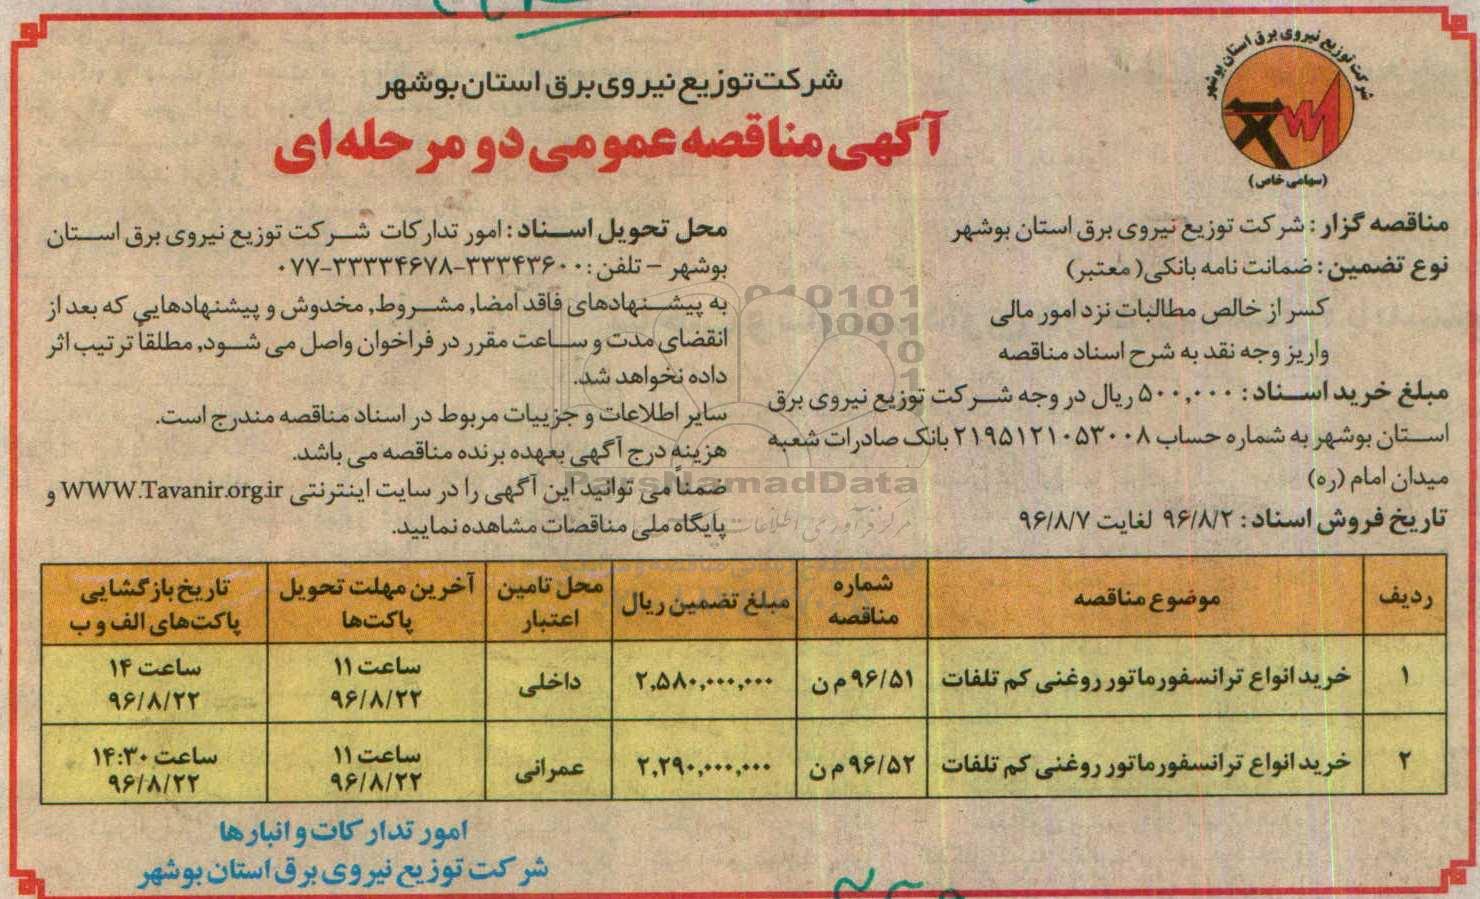 شرکت توزیع نیروی برق استان بوشهر
(سهامی خاص)
شرکت توزیع نیروی برق استان بوشهر
آگهی مناقصه عمومی دو مرحله‌ای
مناقصه گزار : شرکت توزیع نیروی برق استان بوشهر
نوع تضمین : ضمانت نامه بانکی( معتبر)
کسر از خالص مطالبات نزد امور مالی
واریز وجه نقد به شرح اسناد مناقصه
مبلغ خرید اسناد : ۵۰۰,۰۰۰ ریال در وجه شرکت توزیع نیروی برق
استان بوشهر به شماره حساب ۲۱۹۵۱۲۱۰۵۳۰۰۸ بانک صادرات شعبه
میدان امام (ره)
تاریخ فروش اسناد : ۹۶/۸/۲ لغایت ۹۶/۸/۷
محل تحویل اسناد : امور تدارکات شرکت توزیع نیروی برق استان
بوشهر – تلفن : ۳۳۳۴۳۶۰۰-۳۳۳۳۴۶۷۸-۰۷۷
به پیشنهادهای فاقد امضا, مشروط, مخدوش و پیشنهادهایی که بعد از
انقضای مدت و ساعت مقرر در فراخوان واصل می شود, مطلقاً ترتیب اثر
داده نخواهد شد.
سایر اطلاعات و جزییات مربوط در اسناد مناقصه مندرج است.
هزینه درج آگهی بعهده برنده مناقصه می باشد.
ضمناً می توانید این آگهی را در سایت اینترنتی WWW.Tavanir.org.ir و
پایگاه ملی مناقصات مشاهده نمایید.
ParsNamadData
ردیف | موضوع مناقصه | شماره مناقصه | مبلغ تضمین ریال | محل تامین اعتبار | آخرین مهلت تحویل پاکت‌ها | تاریخ بازگشایی پاکت‌های الف و ب
۱ | خرید انواع ترانسفورماتور روغنی کم تلفات | ۹۶/۵۱ م ن | ۲,۵۸۰,۰۰۰,۰۰۰ | داخلی | ساعت ۱۱ ۹۶/۸/۲۲ | ساعت ۱۴ ۹۶/۸/۲۲
۲ | خرید انواع ترانسفورماتور روغنی کم تلفات | ۹۶/۵۲ م ن | ۲,۲۹۰,۰۰۰,۰۰۰ | عمرانی | ساعت ۱۱ ۹۶/۸/۲۲ | ساعت ۱۴:۳۰ ۹۶/۸/۲۲
امور تدارکات و انبارها
شرکت توزیع نیروی برق استان بوشهر